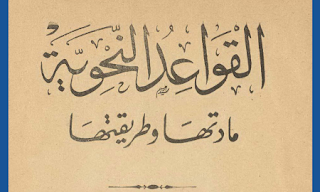 القَواعِدُ النَّحوِيَّة
مادتها وطريقتها